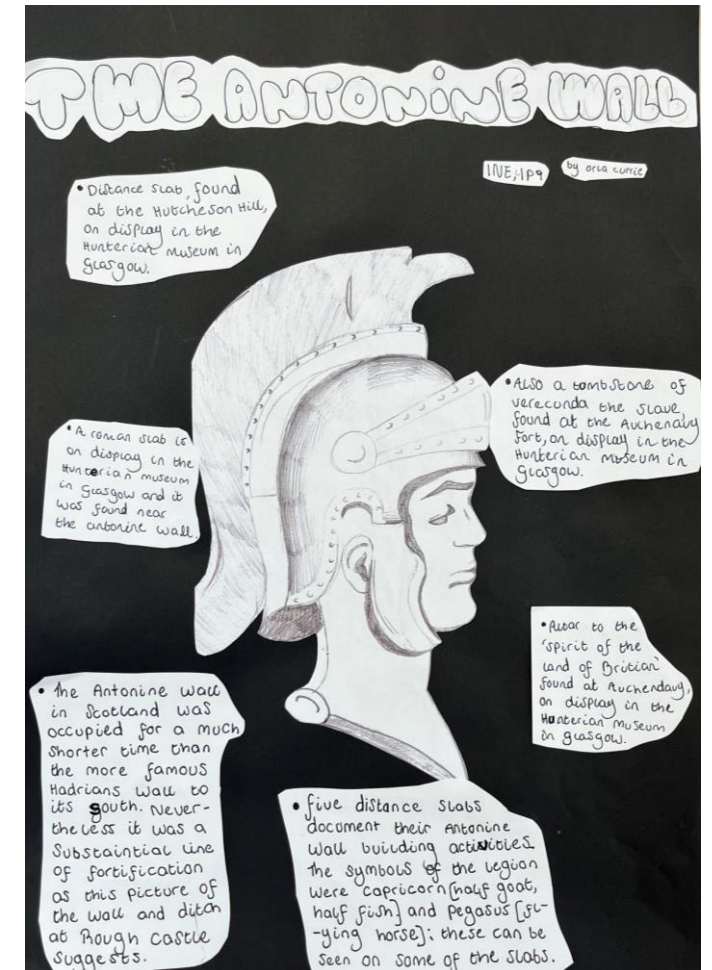 THE ANTONINE WALL
INE,1P9
by orla currie
• Distance slab, found
at the Hutcheson Hill,
on display in the
Hunterian Museum in
Glasgow.
• ALSO a tombstone of
verecunda the slave,
found at the Auchendavy
Fort, on display in the
Hunterian Museum in
Glasgow.
• A roman slab is
on display in the
Hunterian museum
in Glasgow and it
was found near
the antonine wall.
• Altar to the
'spirit of the
land of Britian'
found at Auchendavy,
on display in the
Hunterian Museum
in glasgow.
• The Antonine Wall
in Scotland was
occupied for a much
shorter time than
the more famous
Hadrians wall to
its south. Never-
theless it was a
Substaintial line
of fortification
as this picture of
the wall and ditch
at Rough castle
suggests.
• five distance slabs
document their Antonine
Wall building activities.
The symbols of the legion
were capricorn [half goat,
half fish] and pegasus [fl-
-ying horse]; these can be
seen on some of the slabs.